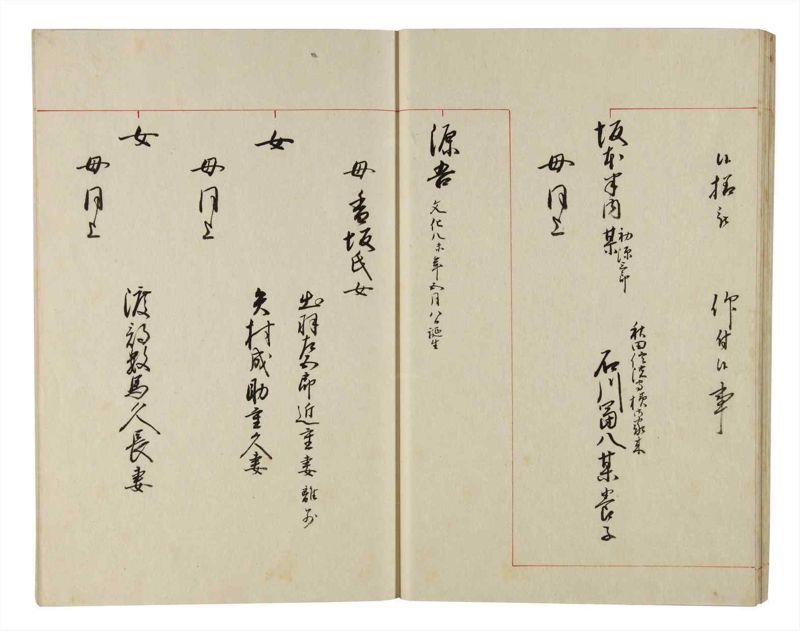 候様被 仰付候事
坂本半内 初源三郎
某
母同上
秋田信濃守様御家来
石川富八某養子
源吾 文化八未年五月八日誕生
母香坂氏女
女
出羽左五郎近重妻 離別
矢村成助重久妻
母同上
女
渡部数馬久長妻
母同上